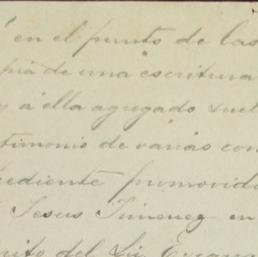 en el punto de las
pia de una escritura
y á ella agregado suel
timonio de varias con
pediente promovido
Jesus Jimenez en
rito del